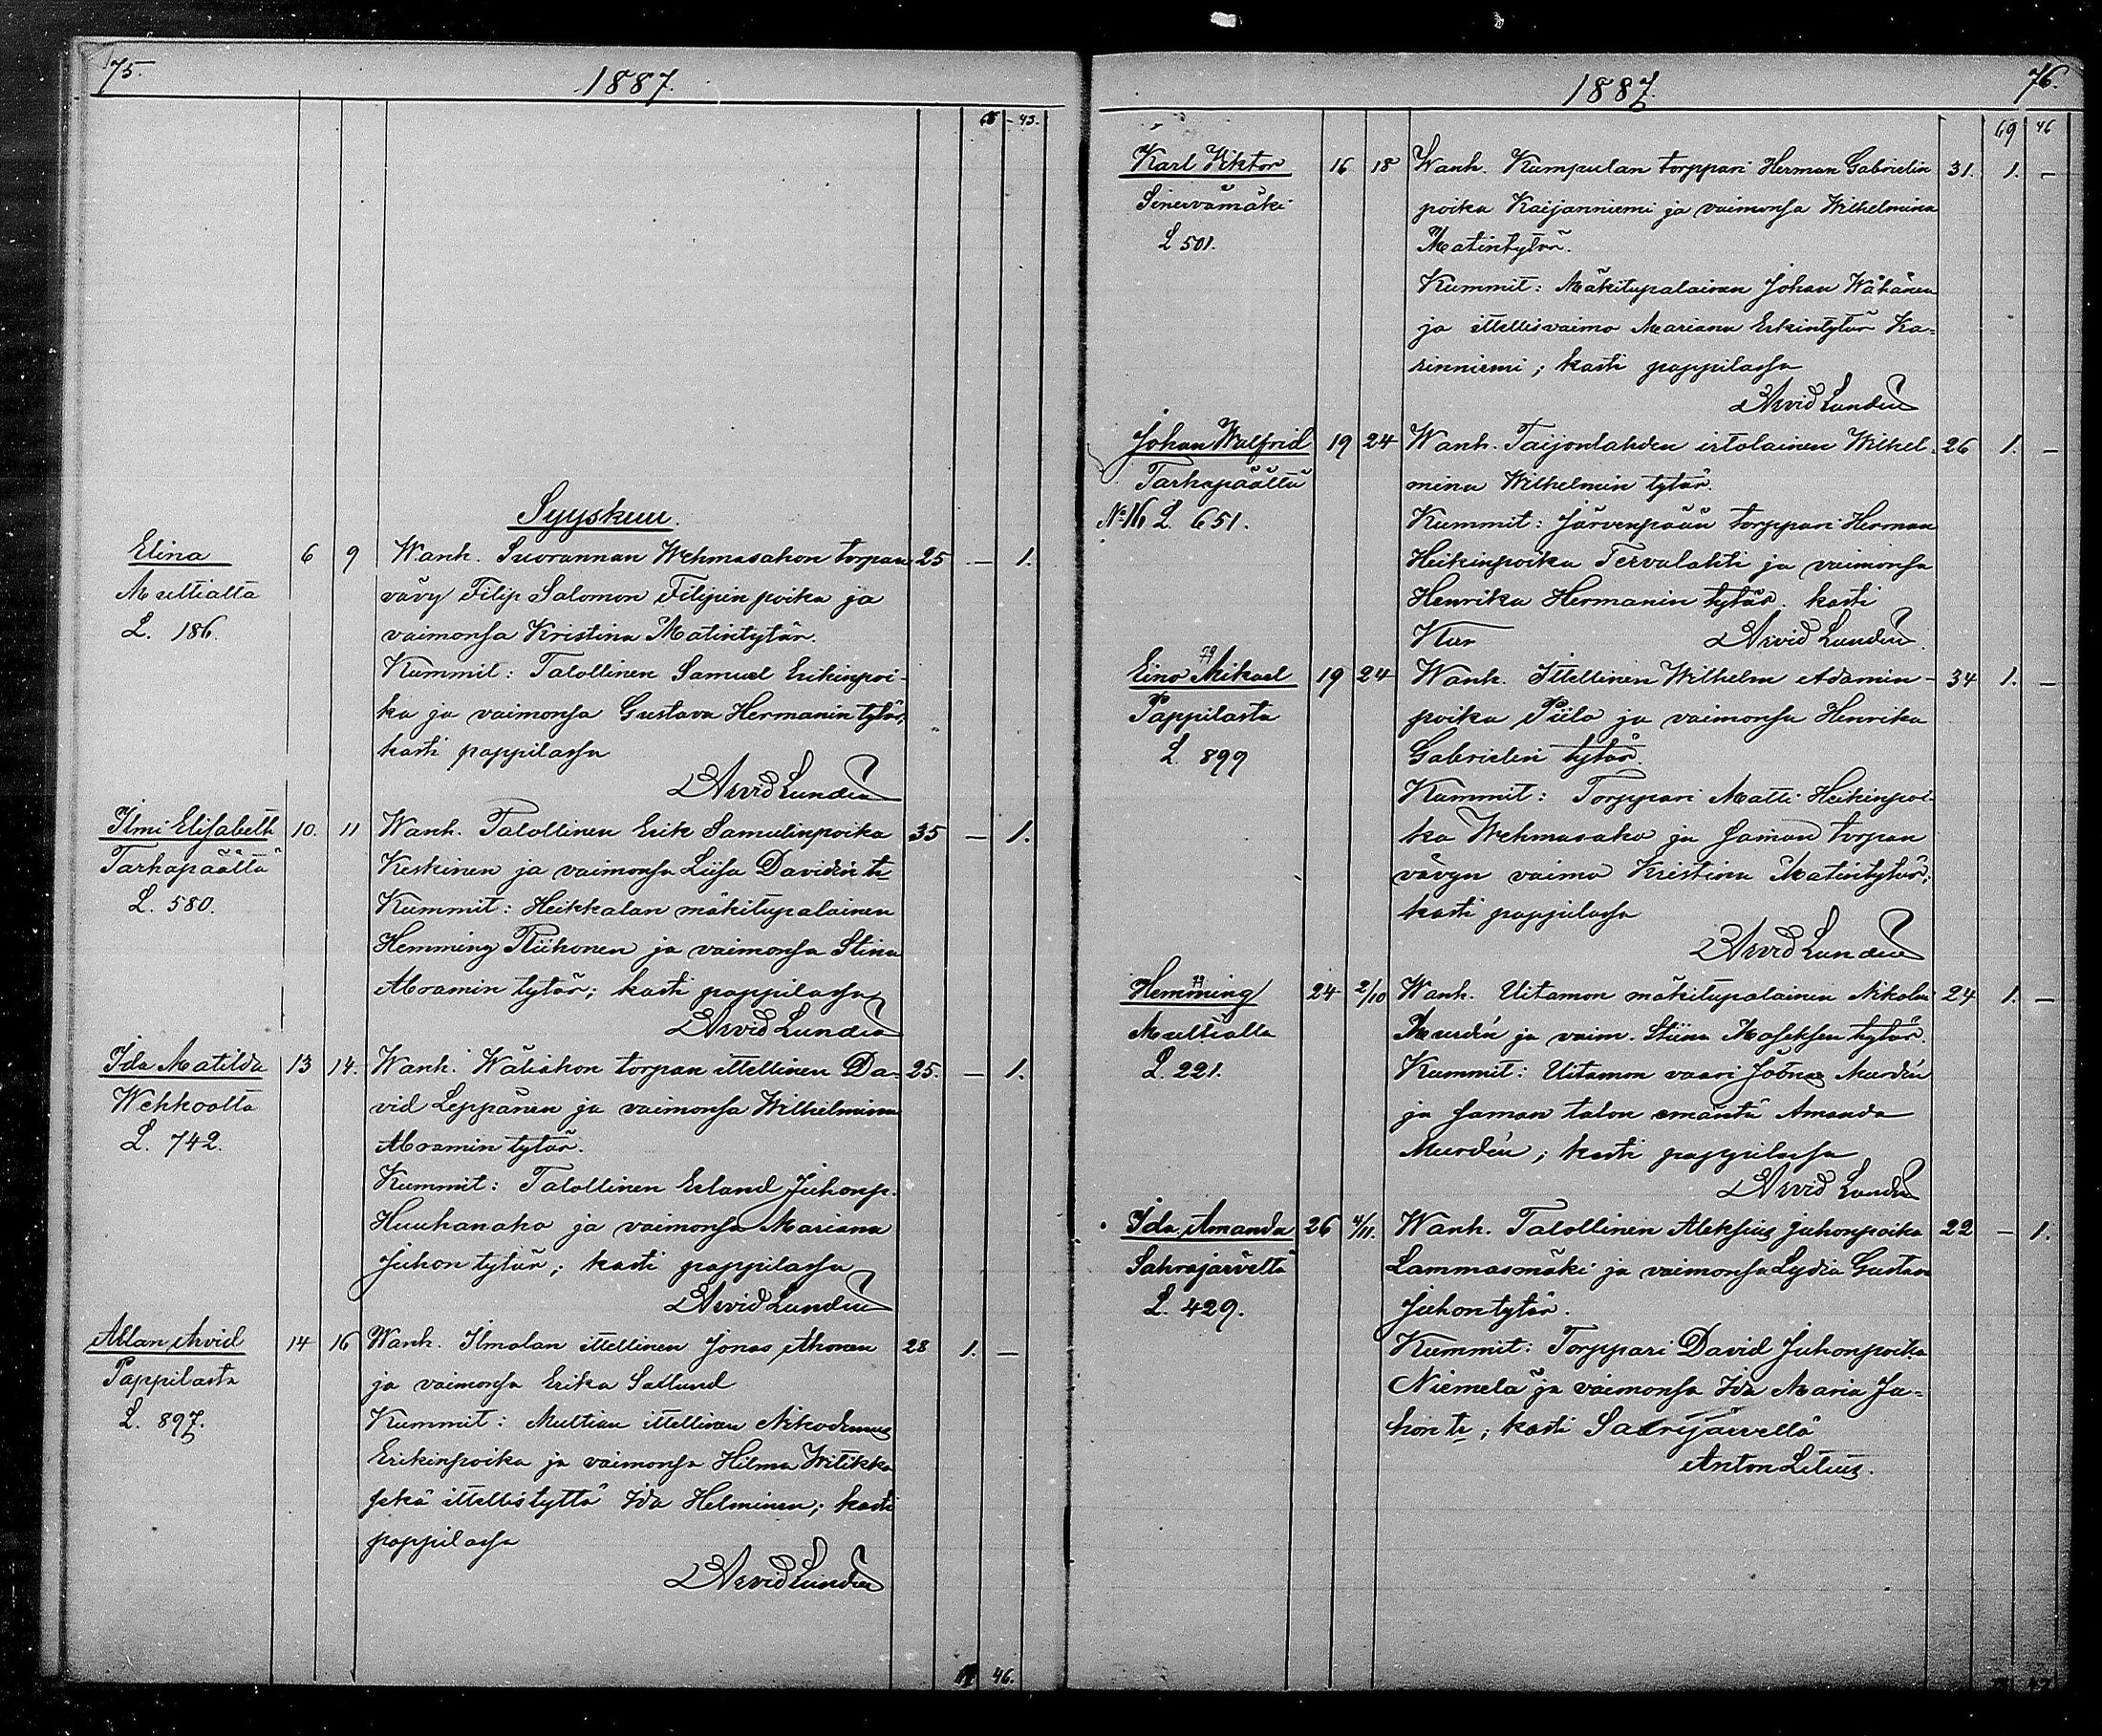 75.
1887.
68 - 45.
Syyskuu.
Elina 6 9 Wanh. Suorannan Wehmasahon torpan 25 — 1.
Multialta vävy Filip Salomon Filipinpoika ja
L. 186. vaimonsa Kristina Matintytär.
Kummit: Talollinen Samuel Erikinpoi-
ka ja vaimonsa Gustava Hermanin tytär,
kasti pappilassa
Arvid Lundén
Ilmi Elisabeth 10. 11 Wanh. Talollinen Erik Samulinpoika 35 — 1.
Tarhapäältä Keskinen ja vaimonsa Liisa Davidin tr
L. 580. Kummit: Heikkalan mäkitupalainen
Hemming Piihonen ja vaimonsa Stina
Abramin tytär; kasti pappilassa
Arvid Lundén
Ida Matilda 13 14. Wanh. Wäliahon torpan ittellinen Da- 25. — 1.
Wehkoolta vid Leppänen ja vaimonsa Wilhelmina
L. 742. Abramin tytär.
Kummit: Talollinen Erland Juhonp.
Huuhanaho ja vaimonsa Mariana
Juhon tytär; kasti pappilassa
Arvid Lundén
Allan Arvid 14 16 Wanh. Ilmolan ittellinen Jonas Ahonen 28 1. —
Pappilasta ja vaimonsa Erika Sallund
L. 897. Kummit: Multian ittellinen Nikodemus
Erikinpoika ja vaimonsa Hilma Wilikka
sekä ittellistyttö Ida Helminen; kasti
pappilassa
Arvid Lundén
46.
1887.
76.
69 46
Karl Viktor 16 18 Wanh. Kumpulan torppari Herman Gabrielin 31. 1. —
Sinervämäki poika Kaijanniemi ja vaimonsa Wilhelmina
L 501. Matintytär.
Kummit: Mäkitupalainen Johan Wähänen
ja ittellisvaimo Mariana Erkintytär Ka-
rinniemi; kasti pappilassa
Arvid Lundén
Johan Walfrid 19 24 Wanh. Taijonlahden irtolainen Wilhel- 26 1. —
Tarhapäältä mina Wilhelmin tytär.
No 16 L. 651. Kummit: Järvenpään torppari Herman
Heikinpoika Tervalahti ja vaimonsa
Henrika Hermanin tytär. kasti
Arvid Lundén
Eino Mikael 19 24 Wanh. Ittellinen Wilhelm Adamin- 34 1. —
Pappilasta poika Piilo ja vaimonsa Henrika
L. 899 Gabrielin tytär.
Kummit: Torppari Matti Heikinpoi-
ka Wehmasaho ja saman torpan
vävyn vaimo Kristina Matintytär;
kasti pappilassa
Arvid Lundén
Hemming 24 2/10 Wanh. Uitamon mäkitupalainen Nikolai 24 1. —
Multialta Murdén ja vaim. Stiina Moseksen tytär.
L. 221. Kummit: Uitamon vaari Joonas Murdén
ja saman talon emäntä Amanda
Murdén; kasti pappilassa
Arvid Lundén
Ida Amanda 26 4/11. Wanh. Talollinen Aleksius Juhonpoika 22 — 1.
Sahrajärveltä Lammasmäki ja vaimonsa Lydia Gustava
L. 429. Juhontytär.
Kummit: Torppari David Juhonpoika
Niemelä ja vaimonsa Ida Maria Ju-
hon tr; kasti Saarijärvellä
Anton Lilius.